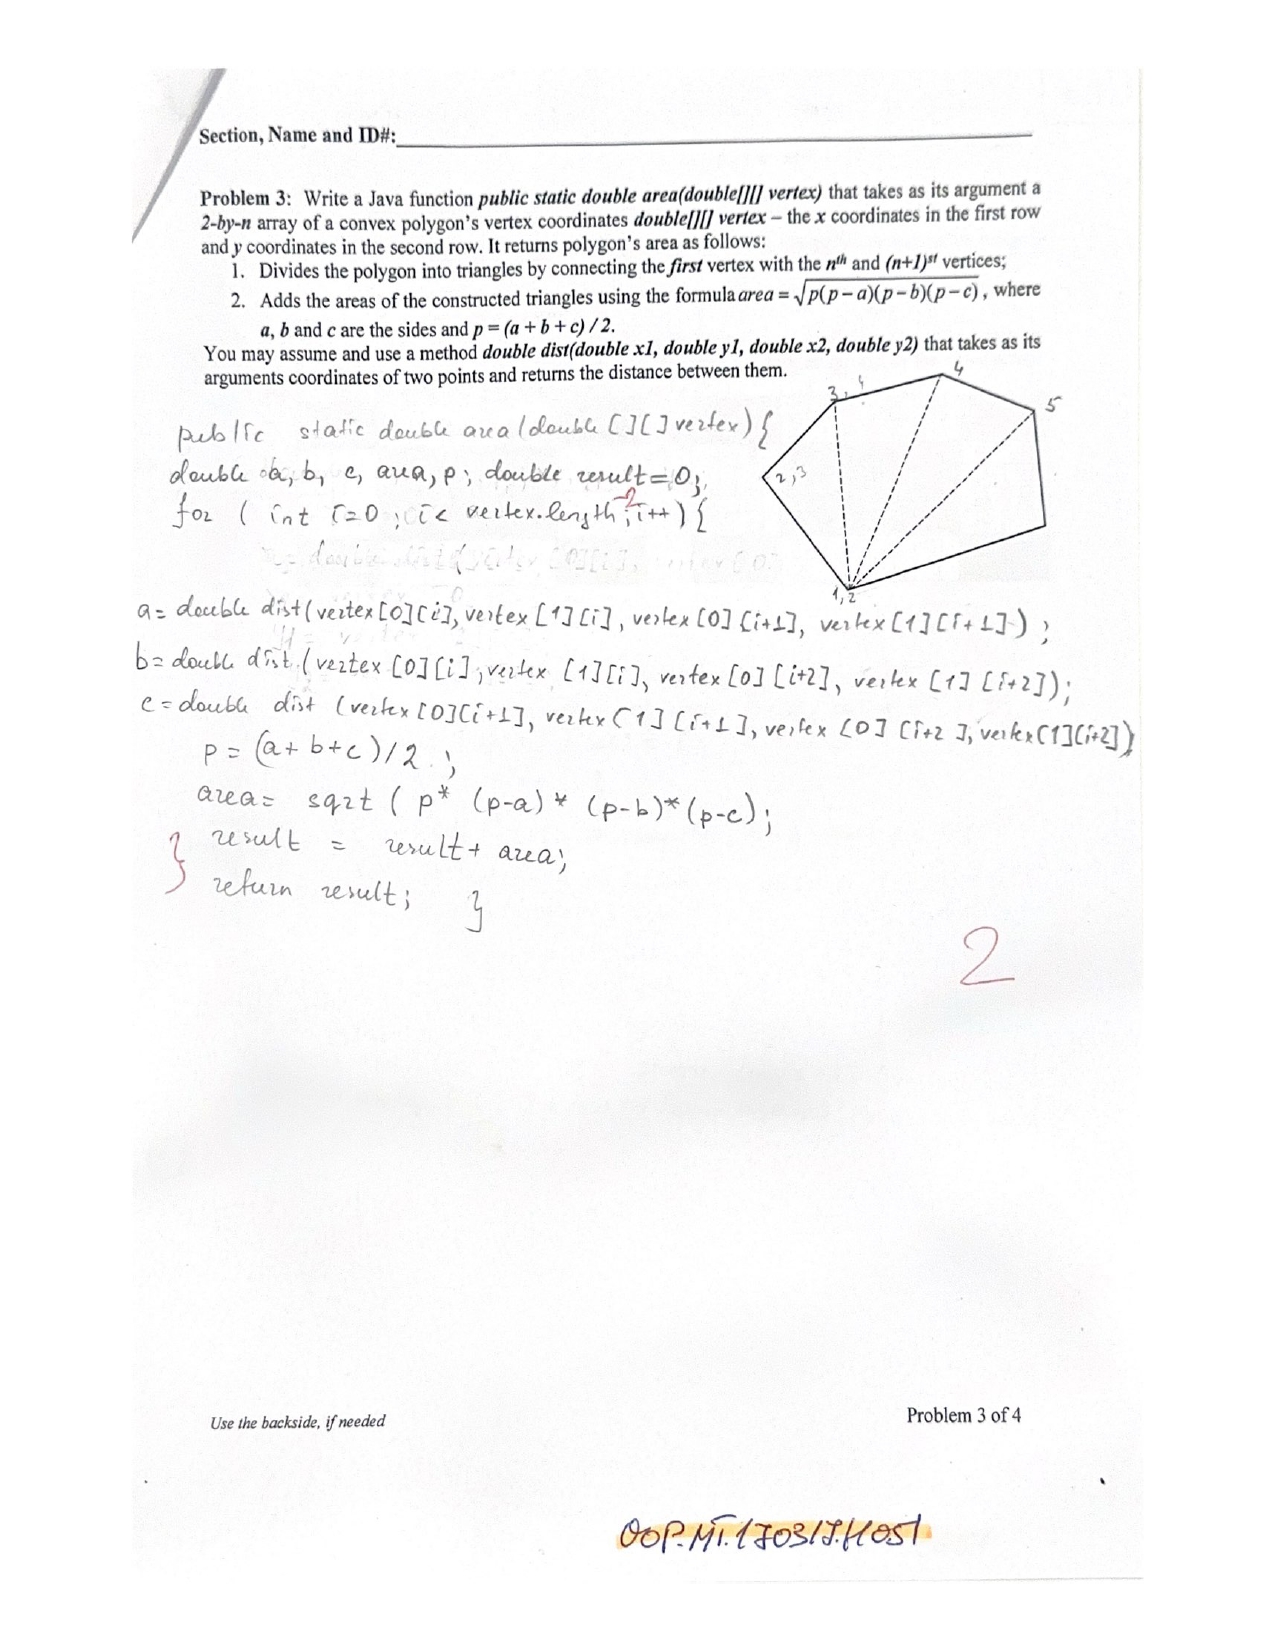 Section, Name and ID#:
Problem 3: Write a Java function public static double area(double[][] vertex) that takes as its argument a
2-by-n array of a convex polygon's vertex coordinates double[][] vertex – the x coordinates in the first row
and y coordinates in the second row. It returns polygon's area as follows:
1. Divides the polygon into triangles by connecting the first vertex with the nth and (n+1)st vertices;
2. Adds the areas of the constructed triangles using the formula area = √p(p – a)(p – b)(p – c) , where
a, b and c are the sides and p = (a + b + c) / 2.
You may assume and use a method double dist(double x1, double y1, double x2, double y2) that takes as its
arguments coordinates of two points and returns the distance between them.
4
3, 4
5
public static double area (double [][] vertex) {
double a, b, c, area, p; double result = 0;
2,3
-2
for ( int i=0 ; i< vertex.length ; i++) {
1,2
a= double dist(vertex[0][i], vertex [1][i], vertex [0] [i+1], vertex [1][i+1]) ;
b= double dist (vertex [0][i], vertex [1][i], vertex [0] [i+2], vertex [1] [i+2]);
c = double dist (vertex [0][i+1], vertex [1] [i+1], vertex [0] [i+2], vertex[1][i+2])
p = (a+ b+c)/2 ;
area= sqrt ( p* (p-a) * (p-b)*(p-c);
} result = result + area;
return result; }
2
Use the backside, if needed
Problem 3 of 4